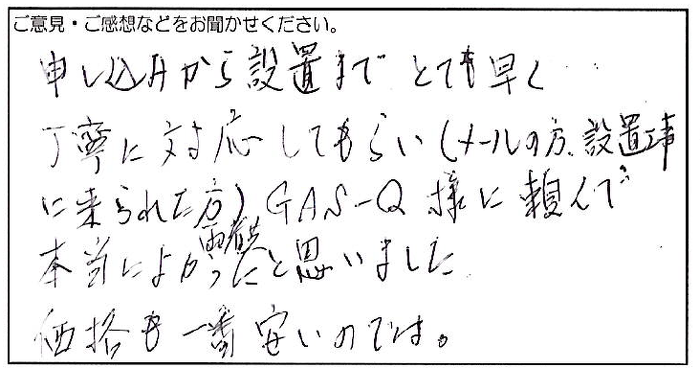 ご意見・ご感想などをお聞かせください。
申し込みから設置までとても早く
丁寧に対応してもらい(メールの方、設置工事
に来られた方)GAS-Q様に頼んで
両者共
本当によかったと思いました
価格も一番安いのでは。